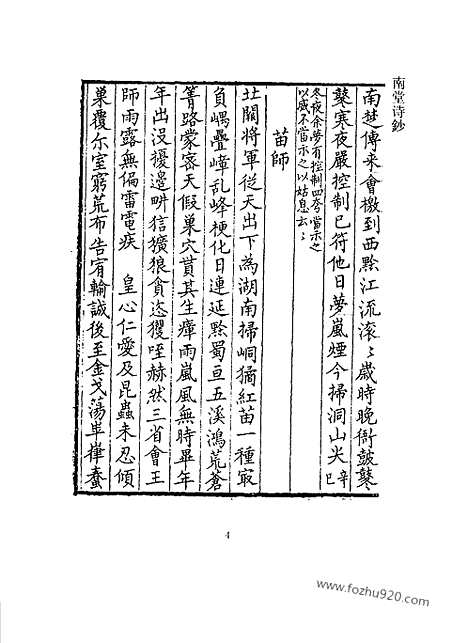 南堂诗鈔
南楚傳来會檄到西黔江流滚〻歳時晚衙皷鼕
鼕寒夜嚴控制已符他日夢嵐煙今掃洞山尖辛巳
冬夜余夢有控制四夸當示之
以威不當示之以姑息云〻
苗師
北闕將軍従天出下為湖南掃峒獝紅苗一種最
負嵎疊嶂乱峰梗化日連延黔蜀亘五溪鴻荒蒼
箐路蒙宻天假巢穴貰其生瘴雨嵐風無時畢年
年出没擾邉畊狺獷狼貪恣玃咥赫然三省會王
師雨露無偏雷電疾 皇心仁愛及昆蟲未忍傾
巢覆尔室窮荒布告宥輸誠後至金戈蕩崒嵂蠢
4
www.fozhu920.com